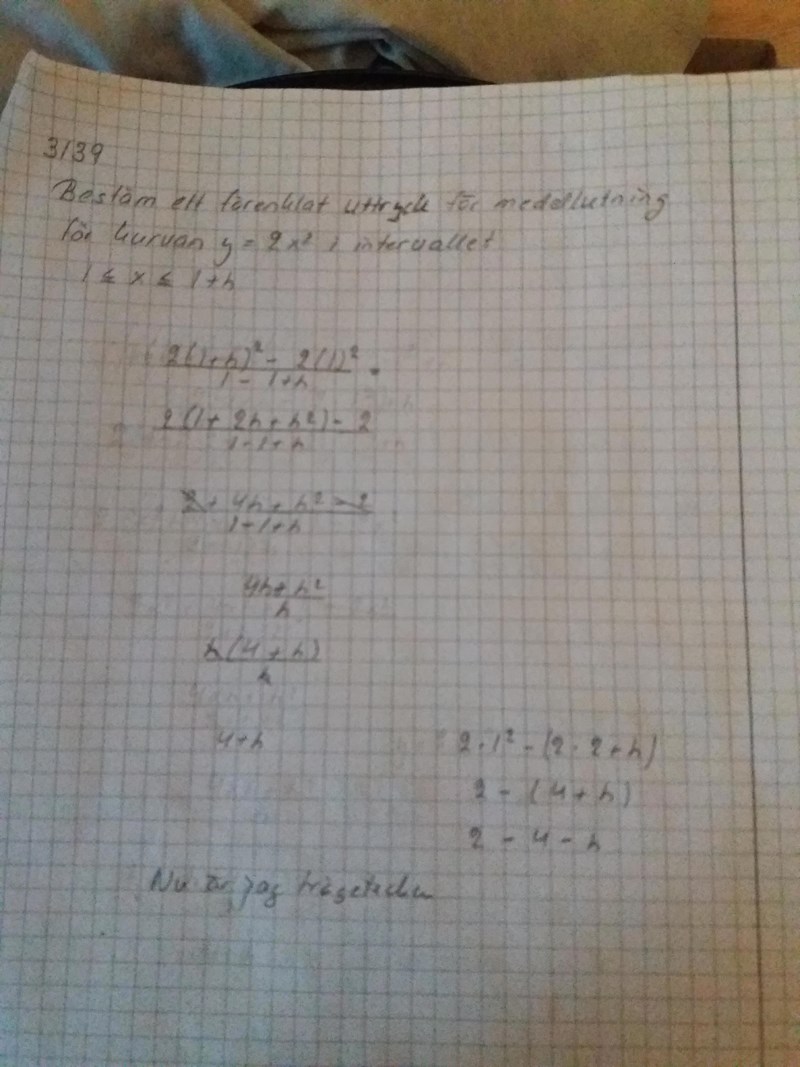 3139
Bestäm ett förenklat uttryck för medellutning
för kurvan y = 2x² i intervallet
1 ≤ x ≤ 1+h
2(1+h)² - 2(1)²
1 - 1+h
2(1 + 2h + h²) - 2
1-1+h
2 + 4h + h² - 2
1-1+h
4h + h²
h
h(4 + h)
h
4+h
2·1² - (2·2+h)
2 - (4+h)
2 - 4 - h
Nu är jag frågetecken